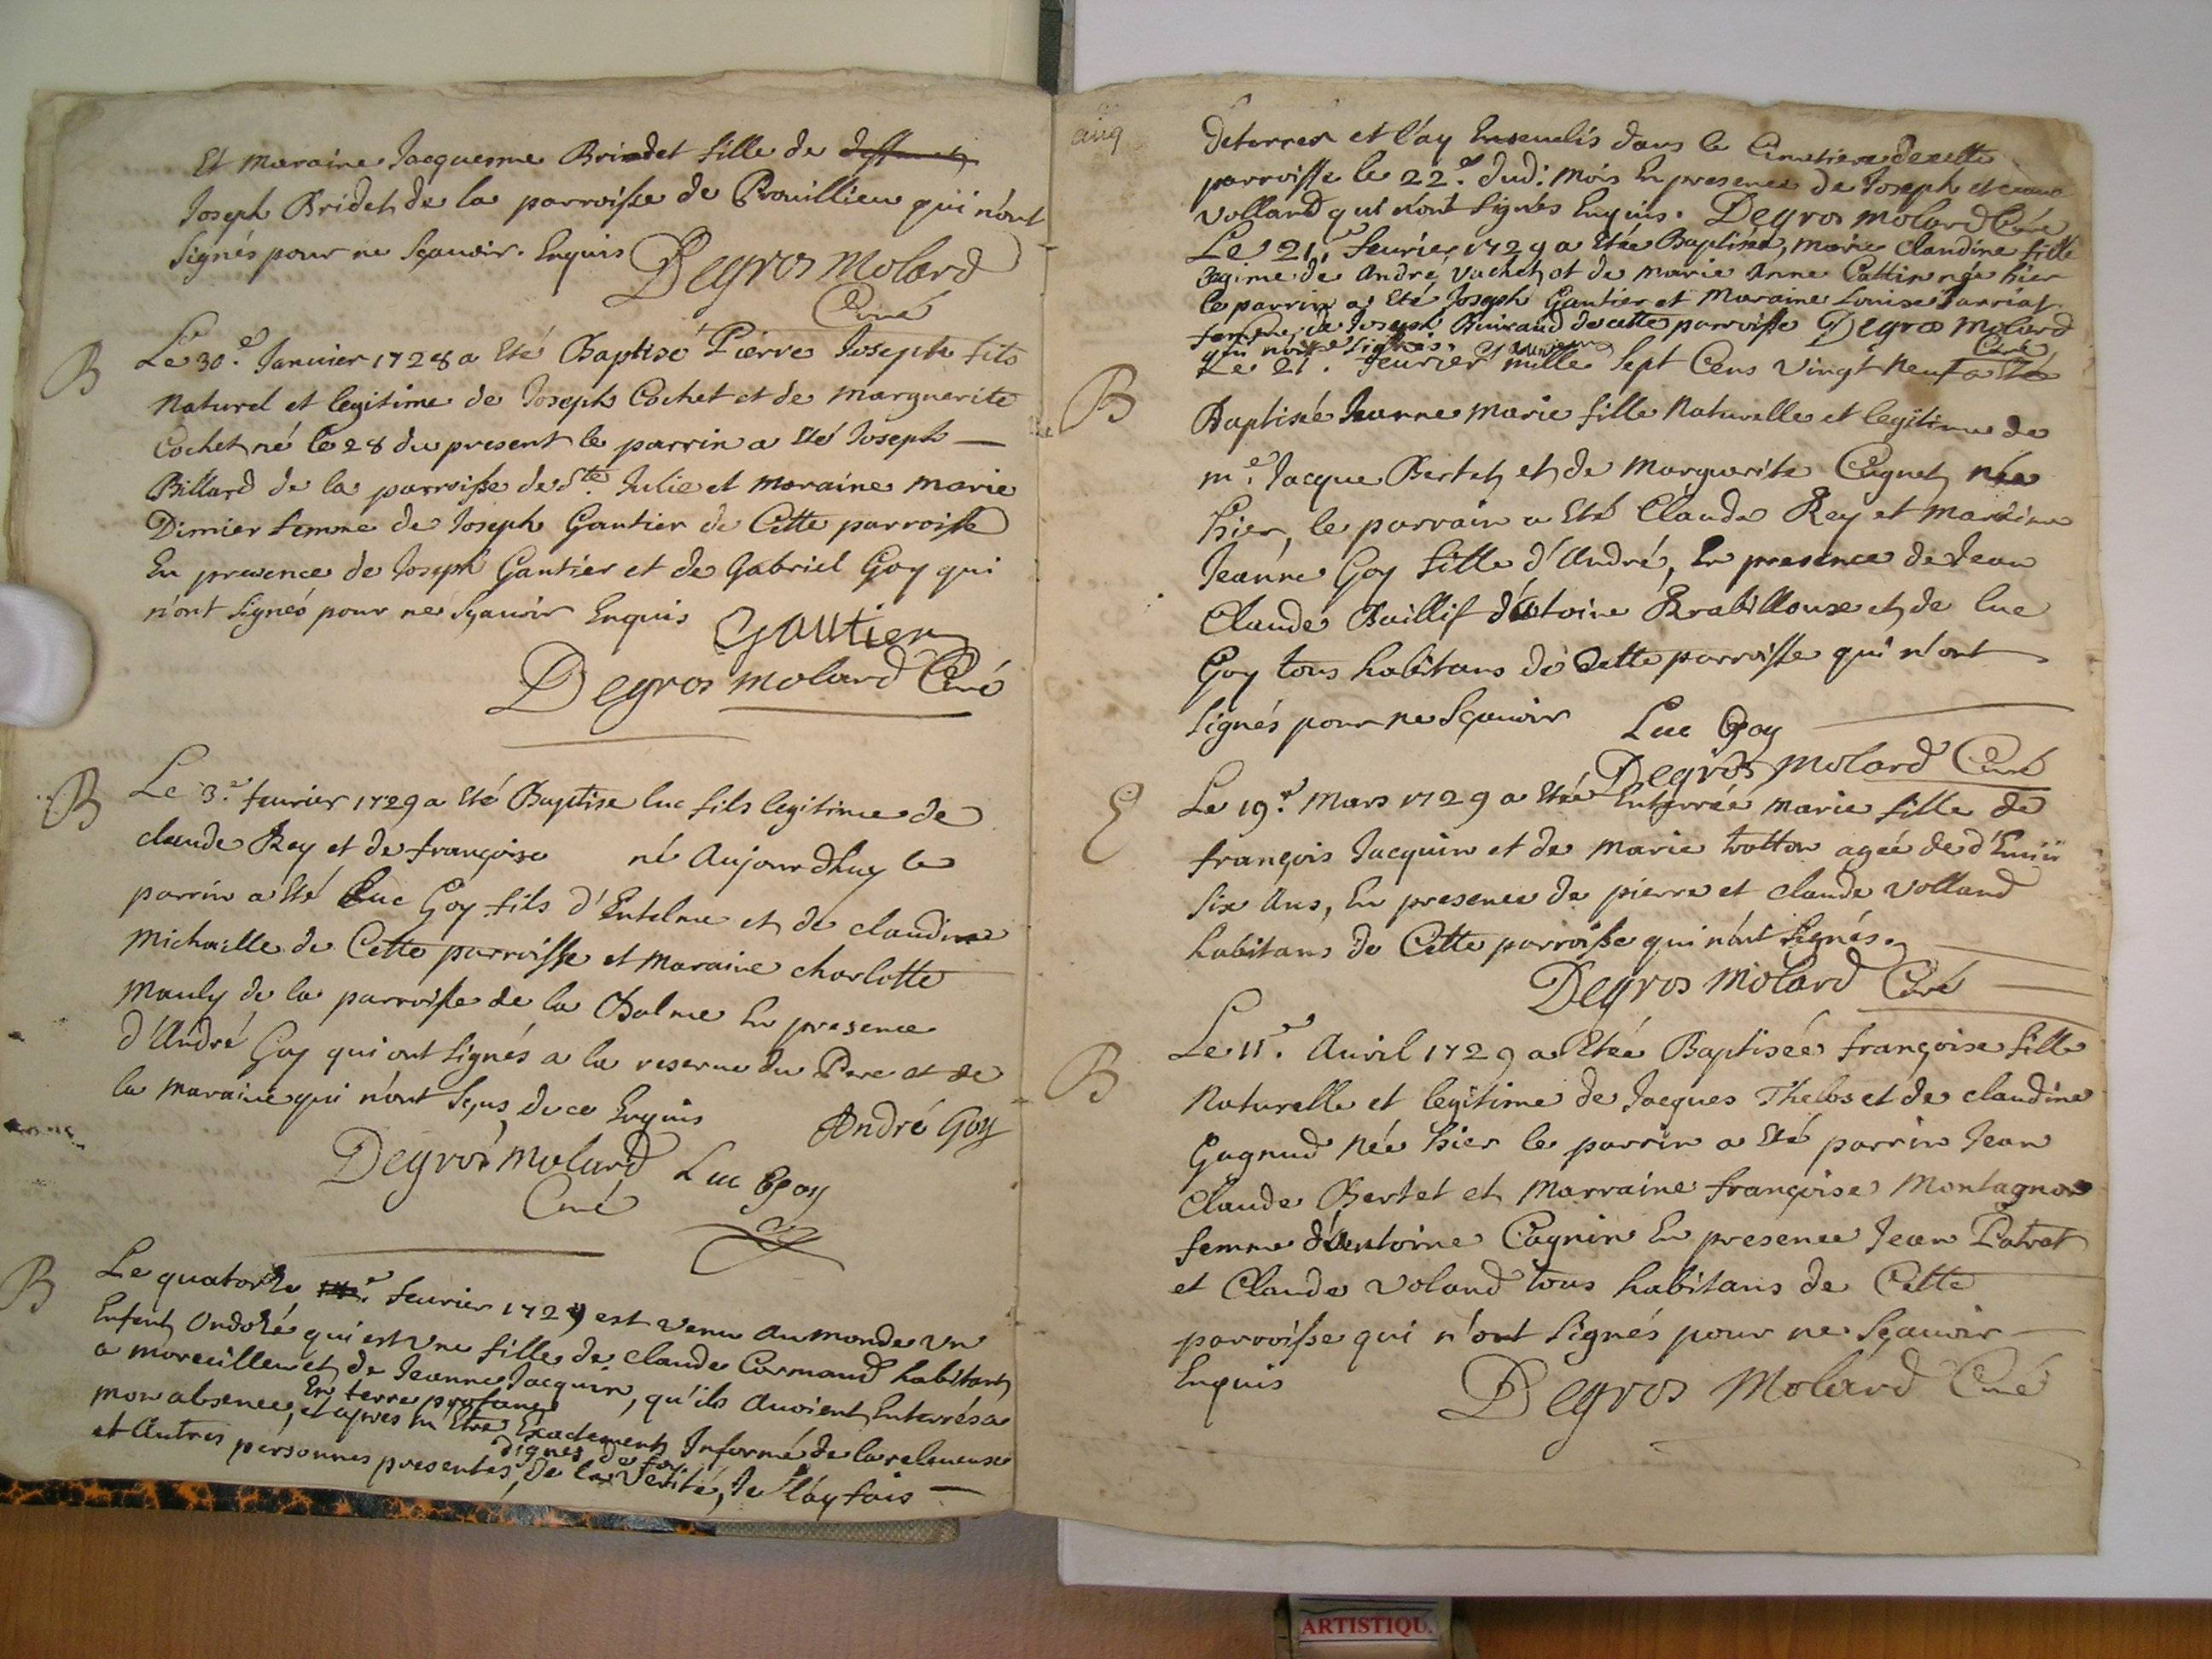 Et maraine Jacquesme Bridet fille de deffunct
Joseph Bridet de la parroisse de Prouillieu qui n'ont
signés pour ne sçauoir. Enquis Degros Molard
Curé
B
Le 30.e Januier 1728 a eté Baptisé Pierre Joseph fils
naturel et legitime de Joseph Cochet et de marguerite
Cochet né le 28 du present le parrin a eté Joseph
Billard de la parroisse de Ste. Julie et maraine marie
Dirnier femme de Joseph Gautier de Cette parroisse
En presence de Joseph Gautier et de Gabriel Goy qui
n'ont signés pour ne sçauoir Enquis Gautier
Degros molard Curé
B
Le 3.e feurier 1729 a eté Baptise luc fils legitime de
claude Rey et de françoise né aujourdhuy le
parrin a eté Luc Goy fils d'Entelme et de claudine
Michaille de Cette parroisse et maraine charlotte
Mauly de la parroisse de la Balme En presence
d'André Goy qui ont signés a la reserue du Pere et de
la maraine qui n'ont sçus de ce Enquis André Goy
Degros molard Luc Goy
Curé
B
Le quatorze 14.e feurier 1729 est venu au monde un
Enfent Ondoié qui est une fille de claude Carmand habitant
a moreuilleu et de Jeanne Jacquin, qu'ils auoient Enterrés a
En terre profane
mon absence, et apres m'Etre Exactement Informé de la releueuse
dignes de foy
et autres personnes presentes, de la Verité, Je l'ay fais
cinq
Deterrer et l'ay Enseuelis dans le Cimetiere de cette
parroisse le 22.e dud: mois En presence de Joseph et
Volland qui n'ont signés Enquis. Degros molard Curé
Le 21.e feurier 1729 a etée Baptiséé, marie claudine fille
legime de André vachet et de marie Anne Cattin née hier
le parrin a eté Joseph Gautier et maraine Louise
femme de Joseph de cette parroisse Degros molard
qui n'ont signés. Curé
B
Le 21.e feurier mille sept Cens vingt neuf a eté
Baptisée Jeanne marie fille naturelle et legitime de
m.e Jacque Bertet et de marguerite Cugnet née
hier, le parrain a eté Claude Rey et maraine
Jeanne Goy fille d'André, En presence de Jean
Claude Baillif d'Antoine Rrabilloux et de luc
Goy tous habitans de Cette parroisse qui n'ont
signés pour ne sçauoir Luc Goy
Degros molard Curé
E
Le 19.e Mars 1729 a etée Enterrée marie fille de
françois Jacquin et de marie trotton agée de d'Enuir
six ans, En presence de pierre et claude volland
habitans de Cette parroisse qui n'ont signés.
Degros Molard Curé
B
Le 11.e Auril 1729 a Etée Baptisée françoise fille
naturelle et legitime de Jacques Thelos et de claudine
Gagnud née hier le parrin a eté parrin Jean
Claude Bertet et marraine françoise Montagnon
femme d'antoine Cagnin En presence Jean Patrat
et Claude Voland tous habitans de Cette
parroisse qui n'ont signés pour ne sçauoir
Enquis Degros Molard Curé
ARTISTIQU